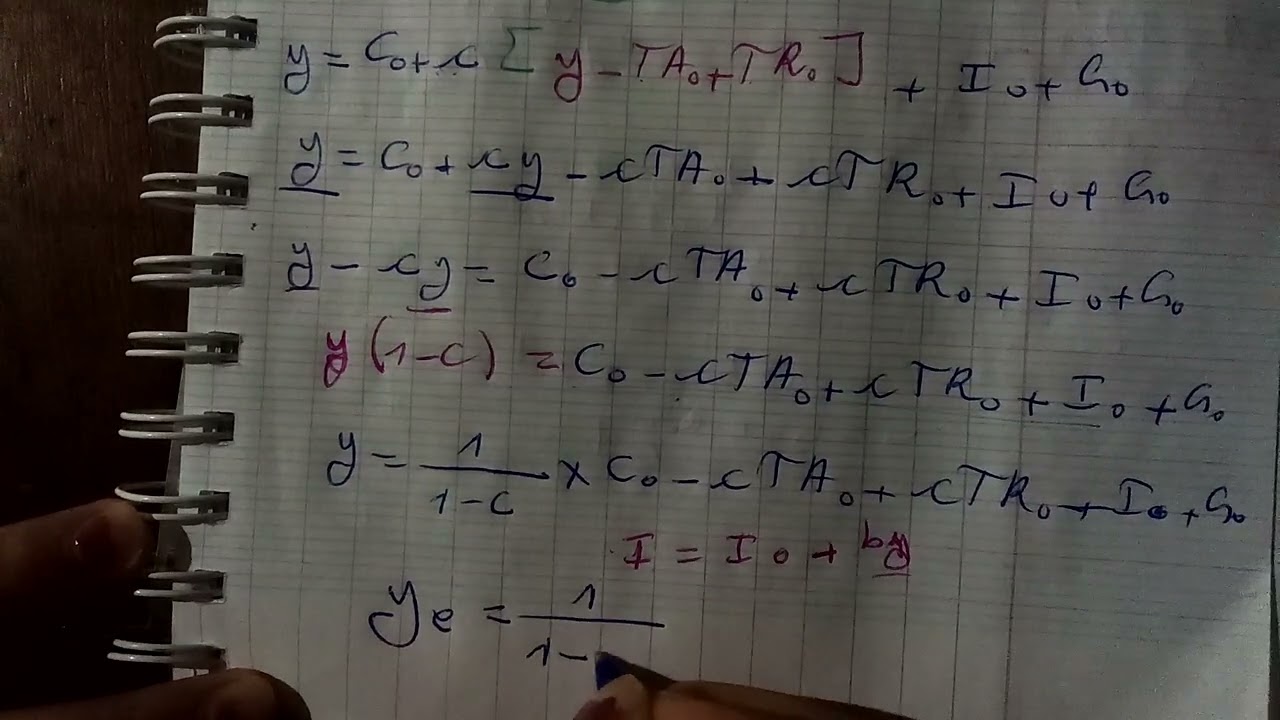 y = C₀ + c [y - TA₀ + TR₀] + I₀ + G₀
y = C₀ + cy - cTA₀ + cTR₀ + I₀ + G₀
y - cy = C₀ - cTA₀ + cTR₀ + I₀ + G₀
y (1-c) = C₀ - cTA₀ + cTR₀ + I₀ + G₀
y = 1/(1-c) × C₀ - cTA₀ + cTR₀ + I₀ + G₀
I = I₀ + by
ye = 1/(1-